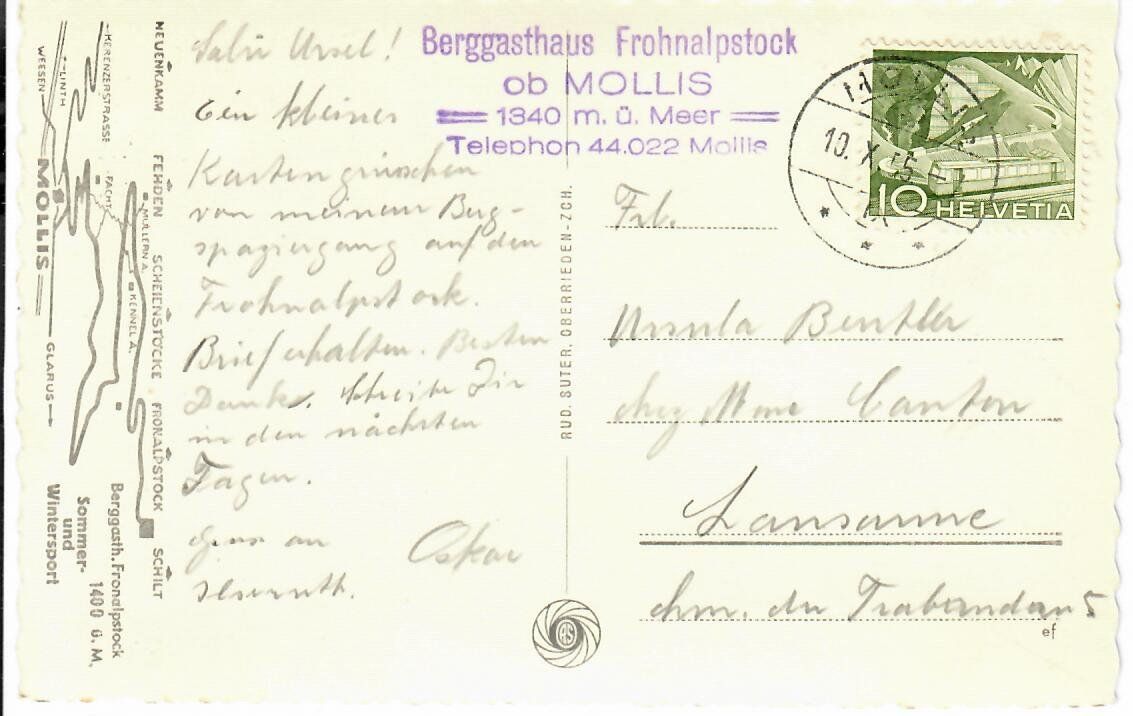 NEUENKAMM FEHDEN SCHEIENSTÖCKE FRONALPSTOCK SCHILT
KERENZERSTRASSE
LINTH
WEESEN
MOLLIS
FACHT
MÜLLERN A.
KENNEL A.
GLARUS
Berggasth. Fronalpstock
1400 ü. M.
Sommer-
und
Wintersport
Berggasthaus Frohnalpstock
ob MOLLIS
1340 m. ü. Meer
Telephon 44.022 Mollis
Salü Ursel!
Ein kleines
Kartengrüsschen
von meinem Berg-
spaziergang auf den
Frohnalpstock.
Brief erhalten. Besten
Dank. Schreibe Dir
in den nächsten
Tagen.
Gruss an
Oskar
RUD. SUTER, OBERRIEDEN-ZCH.
MOLLIS
10. X. 5
10 HELVETIA
Frl.
Ursula
chez Mme Canton
Lausanne
chm. du 5
RS
ef